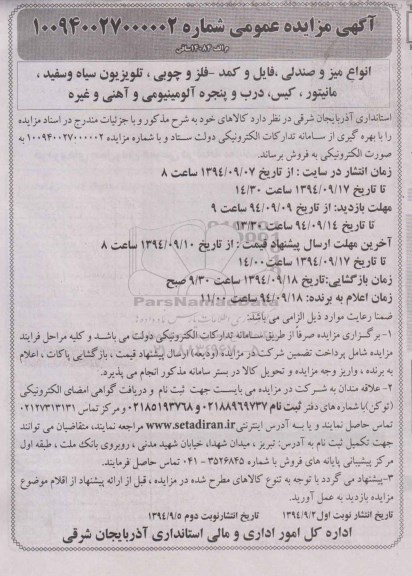 آگهی مزایده عمومی شماره ۱۰۰۹۴۰۰۲۷۰۰۰۰۰۲
انواع میز و صندلی ،فایل و کمد -فلز و چوبی ، تلویزیون سیاه وسفید ،
مانیتور ، کیس، درب و پنجره آلومینیومی و آهنی و غیره
استانداری آذربایجان شرقی در نظر دارد کالاهای خود به شرح مذکور و با جزئیات مندرج در اسناد مزایده
را با بهره گیری از سامانه تدارکات الکترونیکی دولت ستاد و با شماره مزایده ۱۰۰۹۴۰۰۲۷۰۰۰۰۰۲ به
صورت الکترونیکی به فروش برساند.
زمان انتشار در سایت : از تاریخ ۱۳۹۴/۰۹/۰۷ ساعت ۸
تا تاریخ ۱۳۹۴/۰۹/۱۷ ساعت ۱۴/۳۰
مهلت بازدید: از تاریخ ۹۴/۰۹/۰۹ ساعت ۹
تا تاریخ ۹۴/۰۹/۱۴ ساعت ۱۳/۳۰
آخرین مهلت ارسال پیشنهاد قیمت : از تاریخ ۱۳۹۴/۰۹/۱۰ ساعت ۸
تا تاریخ ۱۳۹۴/۰۹/۱۷ ساعت ۱۴/۰۰
زمان بازگشایی:تاریخ ۱۳۹۴/۰۹/۱۸ ساعت ۹/۳۰ صبح
زمان اعلام به برنده: ۹۴/۰۹/۱۸ ساعت ۱۱/۰۰
ParsNamadData
ضمنا رعایت موارد ذیل الزامی می‌باشد:
۱-برگزاری مزایده صرفاً از طریق سامانه تدارکات الکترونیکی دولت می باشد و کلیه مراحل فرایند
مزایده شامل پرداخت تضمین شرکت در مزایده (ودیعه) ارسال پیشنهاد قیمت ، بازگشایی پاکات ، اعلام
به برنده ، واریز وجه مزایده و تحویل کالا در بستر سامانه مذکور انجام می پذیرد.
۲-علاقه مندان به شرکت در مزایده می بایست جهت ثبت نام و دریافت گواهی امضای الکترونیکی
(توکن)با شماره های دفتر ثبت نام ۰۲۱۸۸۹۶۹۷۳۷ و ۰۲۱۸۵۱۹۳۷۶۸ و مرکز تماس ۰۲۱۲۷۳۱۳۱۳۱
تماس حاصل نمایند و یا به آدرس اینترنتی www.setadiran.ir مراجعه نمایند، متقاضیان می توانند
جهت تکمیل ثبت نام به آدرس: تبریز ، میدان شهدا، خیابان شهید مدنی ، روبروی بانک ملت ، طبقه اول
مرکز پیشبیانی پایانه های فروش با شماره ۳۵۲۶۸۴۵ - ۰۴۱ تماس حاصل فرمایند.
۳-پیشنهاد می گردد با توجه به تنوع کالاهای مطرح شده در مزایده ، قبل از ارائه پیشنهاد از اقلام موضوع
مزایده بازدید به عمل آورید.
تاریخ انتشار نوبت اول ۱۳۹۴/۹/۲ تاریخ انتشارنوبت دوم ۱۳۹۴/۹/۵
اداره کل امور اداری و مالی استانداری آذربایجان شرقی